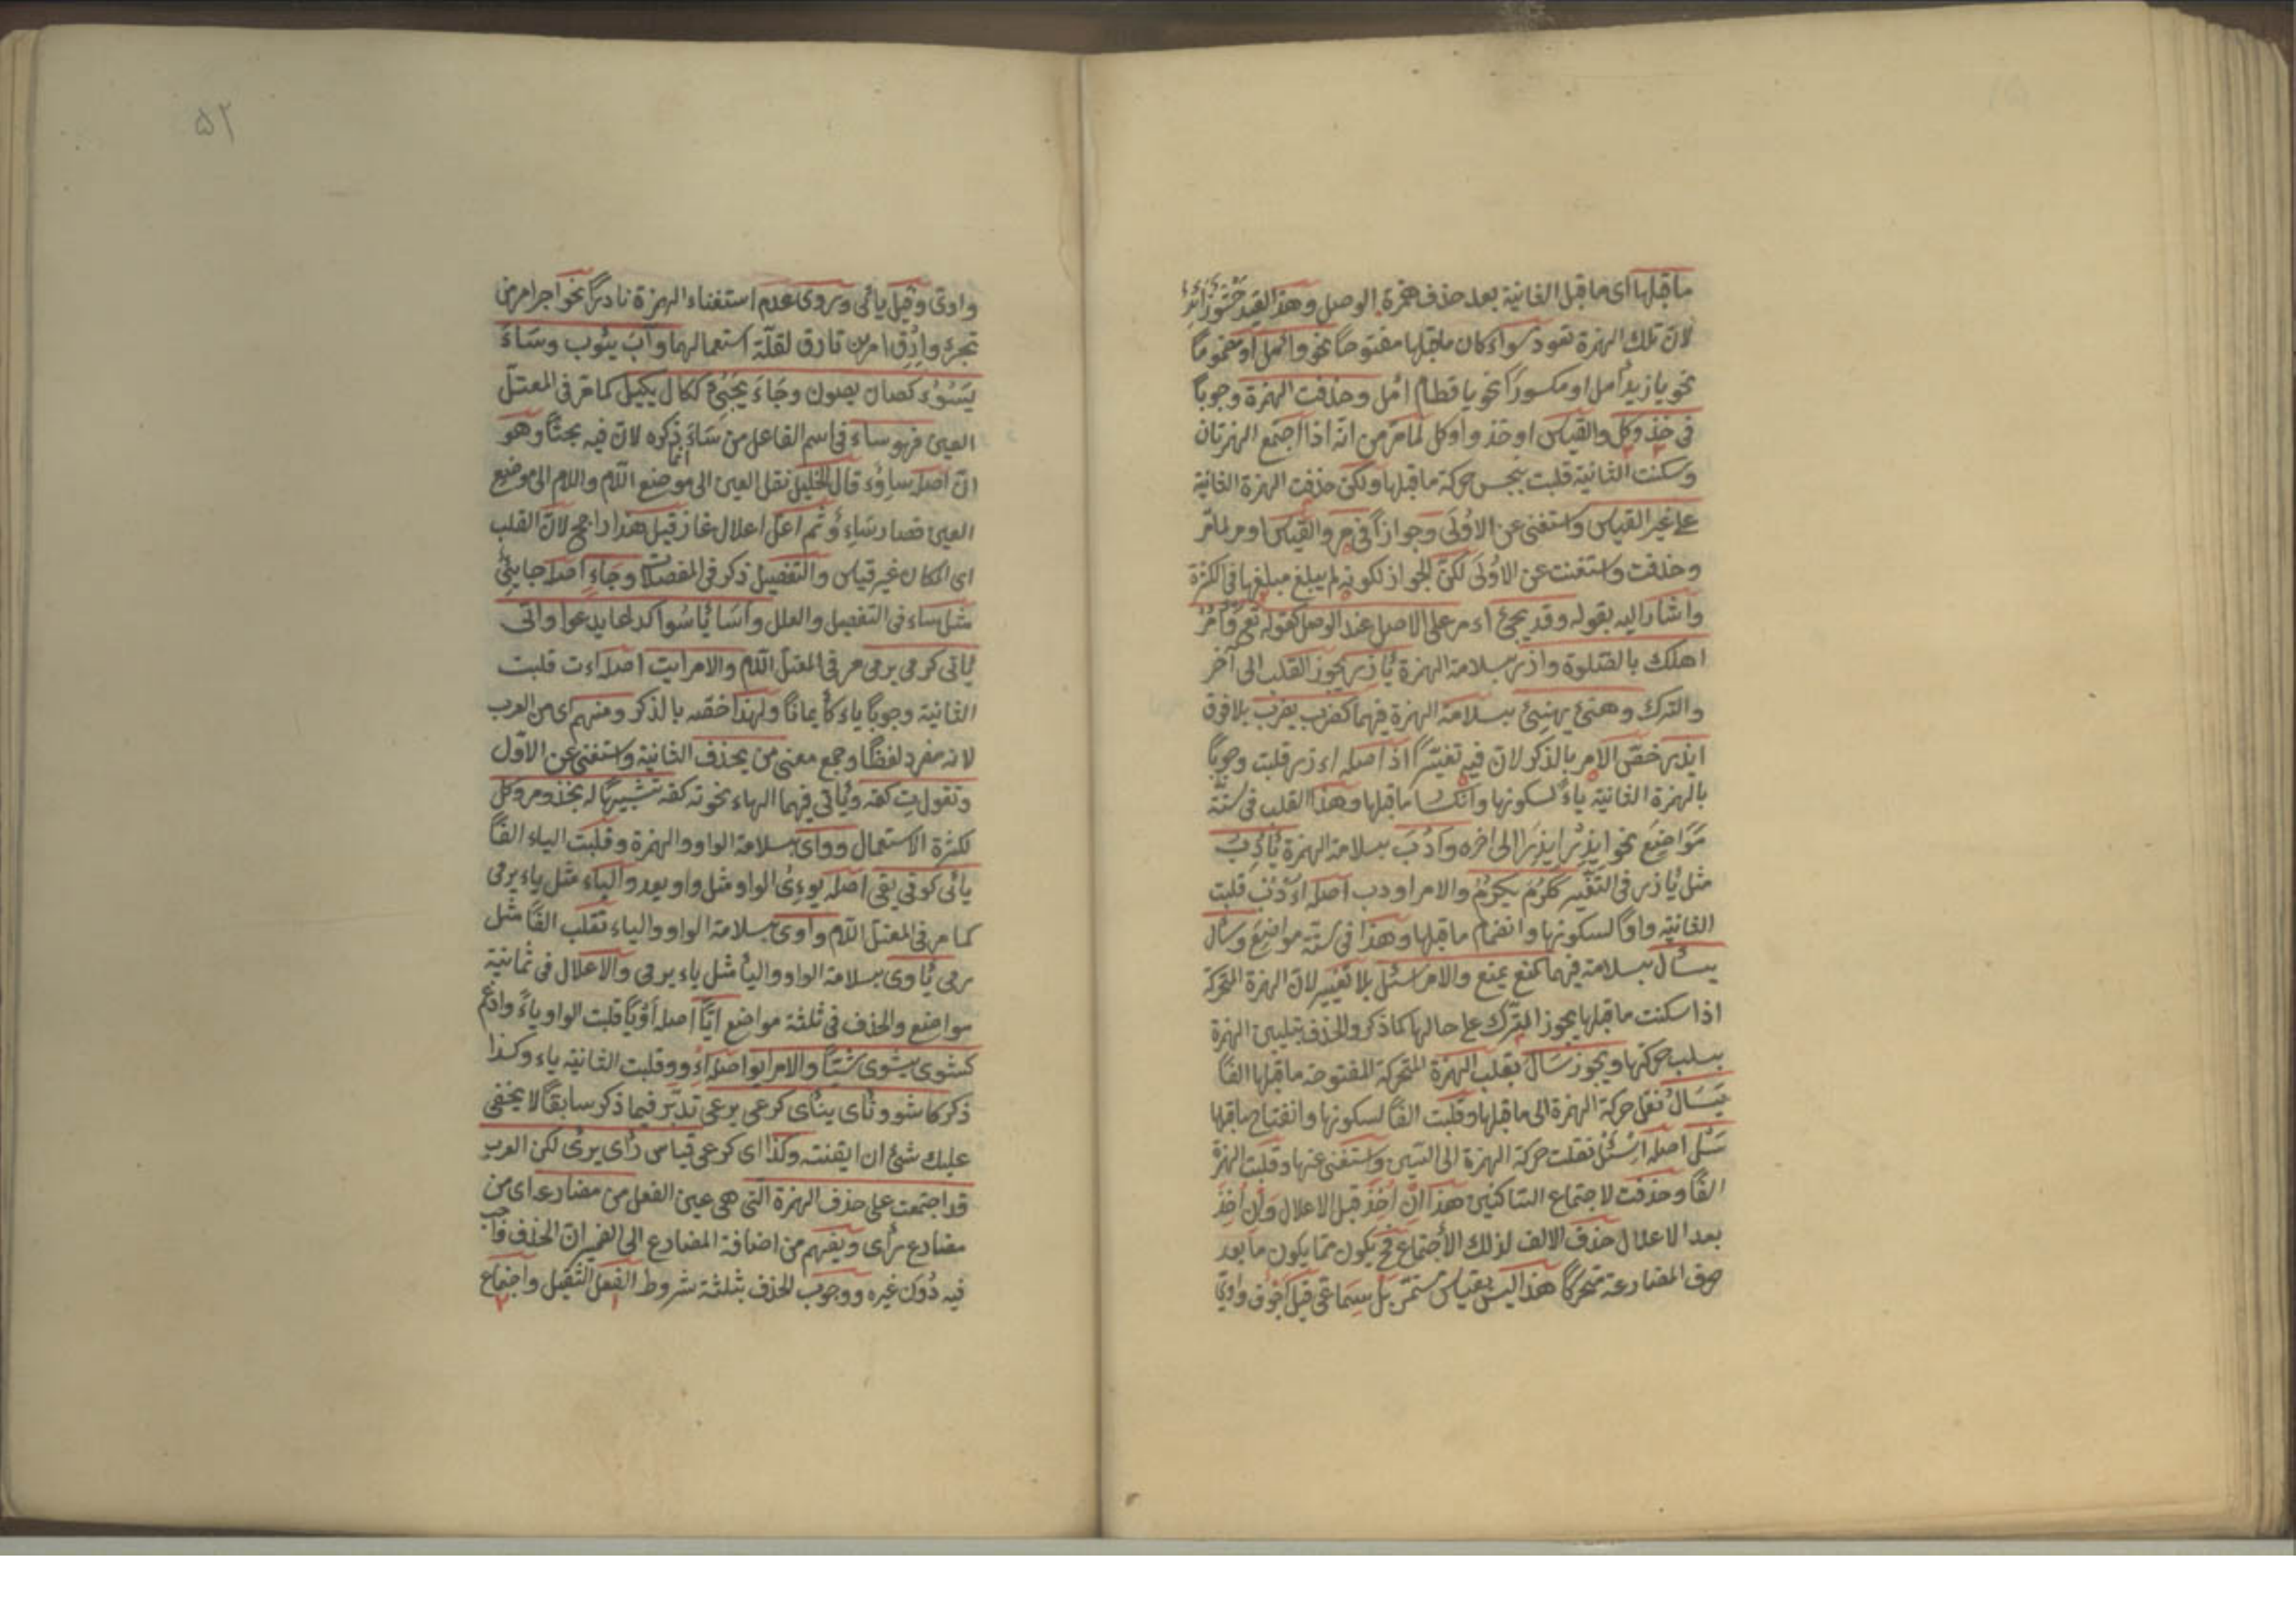 ماقبلها اى ماقبل الثانية بعد حذف همزة الوصل وهذا القيد حشو زائد
لان تلك الهمزة تعود سواء كان ماقبلها مفتوحا نحو وائمل او مضموما
نحو يا زيد أمل او مكسورا نحو يا قطام ائمل وحذفت الهمزة وجوبا
فى خذ وكل والقياس اوخذ واوكل لمامر من انه اذا اجتمع الهمزتان
وسكنت الثانية قلبت بجنس حركة ماقبلها ولكن حذفت الهمزة الثانية
على غير القياس واستغنى عن الاولى وجوازا فى مر والقياس اومر لمامر
وحذفت واستغنت عن الاولى لكن الجواز لكونه لم يبلغ مبلغها فى الكثرة
واشار اليه بقوله وقد يجئ اءمر على الاصل عند الوصل كقوله تع وأمر
اهلك بالصلوة واذر بسلامة الهمزة يأذر يجوز القلب الى آخر
والترك وهنئ يهنئ بسلامة الهمزة فيهما كضرب يضرب بلا فرق
ايذر خص الامر بالذكر لان فيه تغيرا اذ اصله اءذر قلبت وجوبا
بالهمزة الثانية ياء لسكونها وانكسار ماقبلها وهذا القلب فى ستة
مواضع نحو ايذر ايذرا الى اخره وادب بسلامة الهمزة يأدب
مثل يأذر فى التغير ككرم يكرم والامر اودب اصله اءدب قلبت
الثانية واوا لسكونها وانضمام ماقبلها وهذا فى ستة مواضع وسأل
يسأل بسلامة فيهما كمنع يمنع والامر اسئل بلا تغيير لان الهمزة المتحركة
اذا سكنت ماقبلها يجوز الترك على حالها كما ذكر والحذف بتليين الهمزة
بسلب حركتها ويجوز سال بقلب الهمزة المتحركة المفتوحة ماقبلها الفا
يسال نقل حركة الهمزة الى ماقبلها وقلبت الفا لسكونها وانفتاح ماقبلها
سل اصله اسئل نقلت حركة الهمزة الى السين واستغنى عنها وقلبت الهمزة
الفا وحذفت لاجتماع الساكنين هذا ان أخذ قبل الاعلال وان أخذ
بعد الاعلال حذف الالف لذلك الاجتماع فح يكون مما يكون مابعد
حرف المضارعة متحركا هذا ليس بقياس مستمر بل سماعى قيل اجوف واوى
۵۲
واوى وقيل يائى وروى عدم استغناء الهمزة نادرا نحو اجرا مر من
تجرء وازق امر من تازق لقلة استعمالهما وآب يئوب وساء
يسوء كصان يصون وجاء يجئ ككال يكيل كما مر فى المعتل
العين فهو ساء فى اسم الفاعل من ساء انما ذكره لان فيه بحثا وهو
ان اصله ساوء قال الخليل نقل العين الى موضع اللام واللام الى موضع
العين فصار ساءو ثم اعل اعلال غاز قيل هذا راجح لان القلب
اى المكان غير قياس والتفصيل ذكر فى المفصلات وجاء اصله جايئ
مثل ساء فى التفصيل والعلل وأسا يأسوا كدعا يدعوا واتى
يأتى كرمى يرمى مر فى المعتل اللام والامر ايت اصله اءت قلبت
الثانية وجوبا ياء كأيمانا ولهذا خصه بالذكر ومنهم اى من العرب
لانه مفرد لفظا وجمع معنى من يحذف الثانية واستغنى عن الاول
وتقول ت كقه ويأتى فيهما الهاء نحو ته كقه تشبيها له بخذ ومر وكل
لكثرة الاستعمال وواى بسلامة الواو والهمزة وقلبت الياء الفا
يائى كوقى يقى اصله يوءى الواو مثل واو يعد والياء مثل ياء يرمى
كما مر فى المعتل اللام واوى بسلامة الواو والياء تقلب الفا مثل
رمى يأوى بسلامة الواو واليأ مثل ياء يرمى والاعلال فى ثمانية
مواضع والحذف فى ثلثة مواضع ايا اصله أويا قلبت الواو ياء وادغم
كشوى يشوى شيا والامر ايو اصله اءوو قلبت الثانية ياء وكذا
ذكر كاشو ونأى ينأى كرعى يرعى تدبر فيما ذكر سابقا لا يخفى
عليك شئ ان ايقنته وكذا اى كرعى قياس رأى يرى لكن العرب
قد اجتمعت على حذف الهمزة التى هى عين الفعل من مضارعه اى من
مضارع رأى ويفهم من اضافة المضارع الى الضمير ان الحذف واجب
فيه دون غيره ووجوب الحذف بثلثة شروط الفعل الثقيل واجتماع